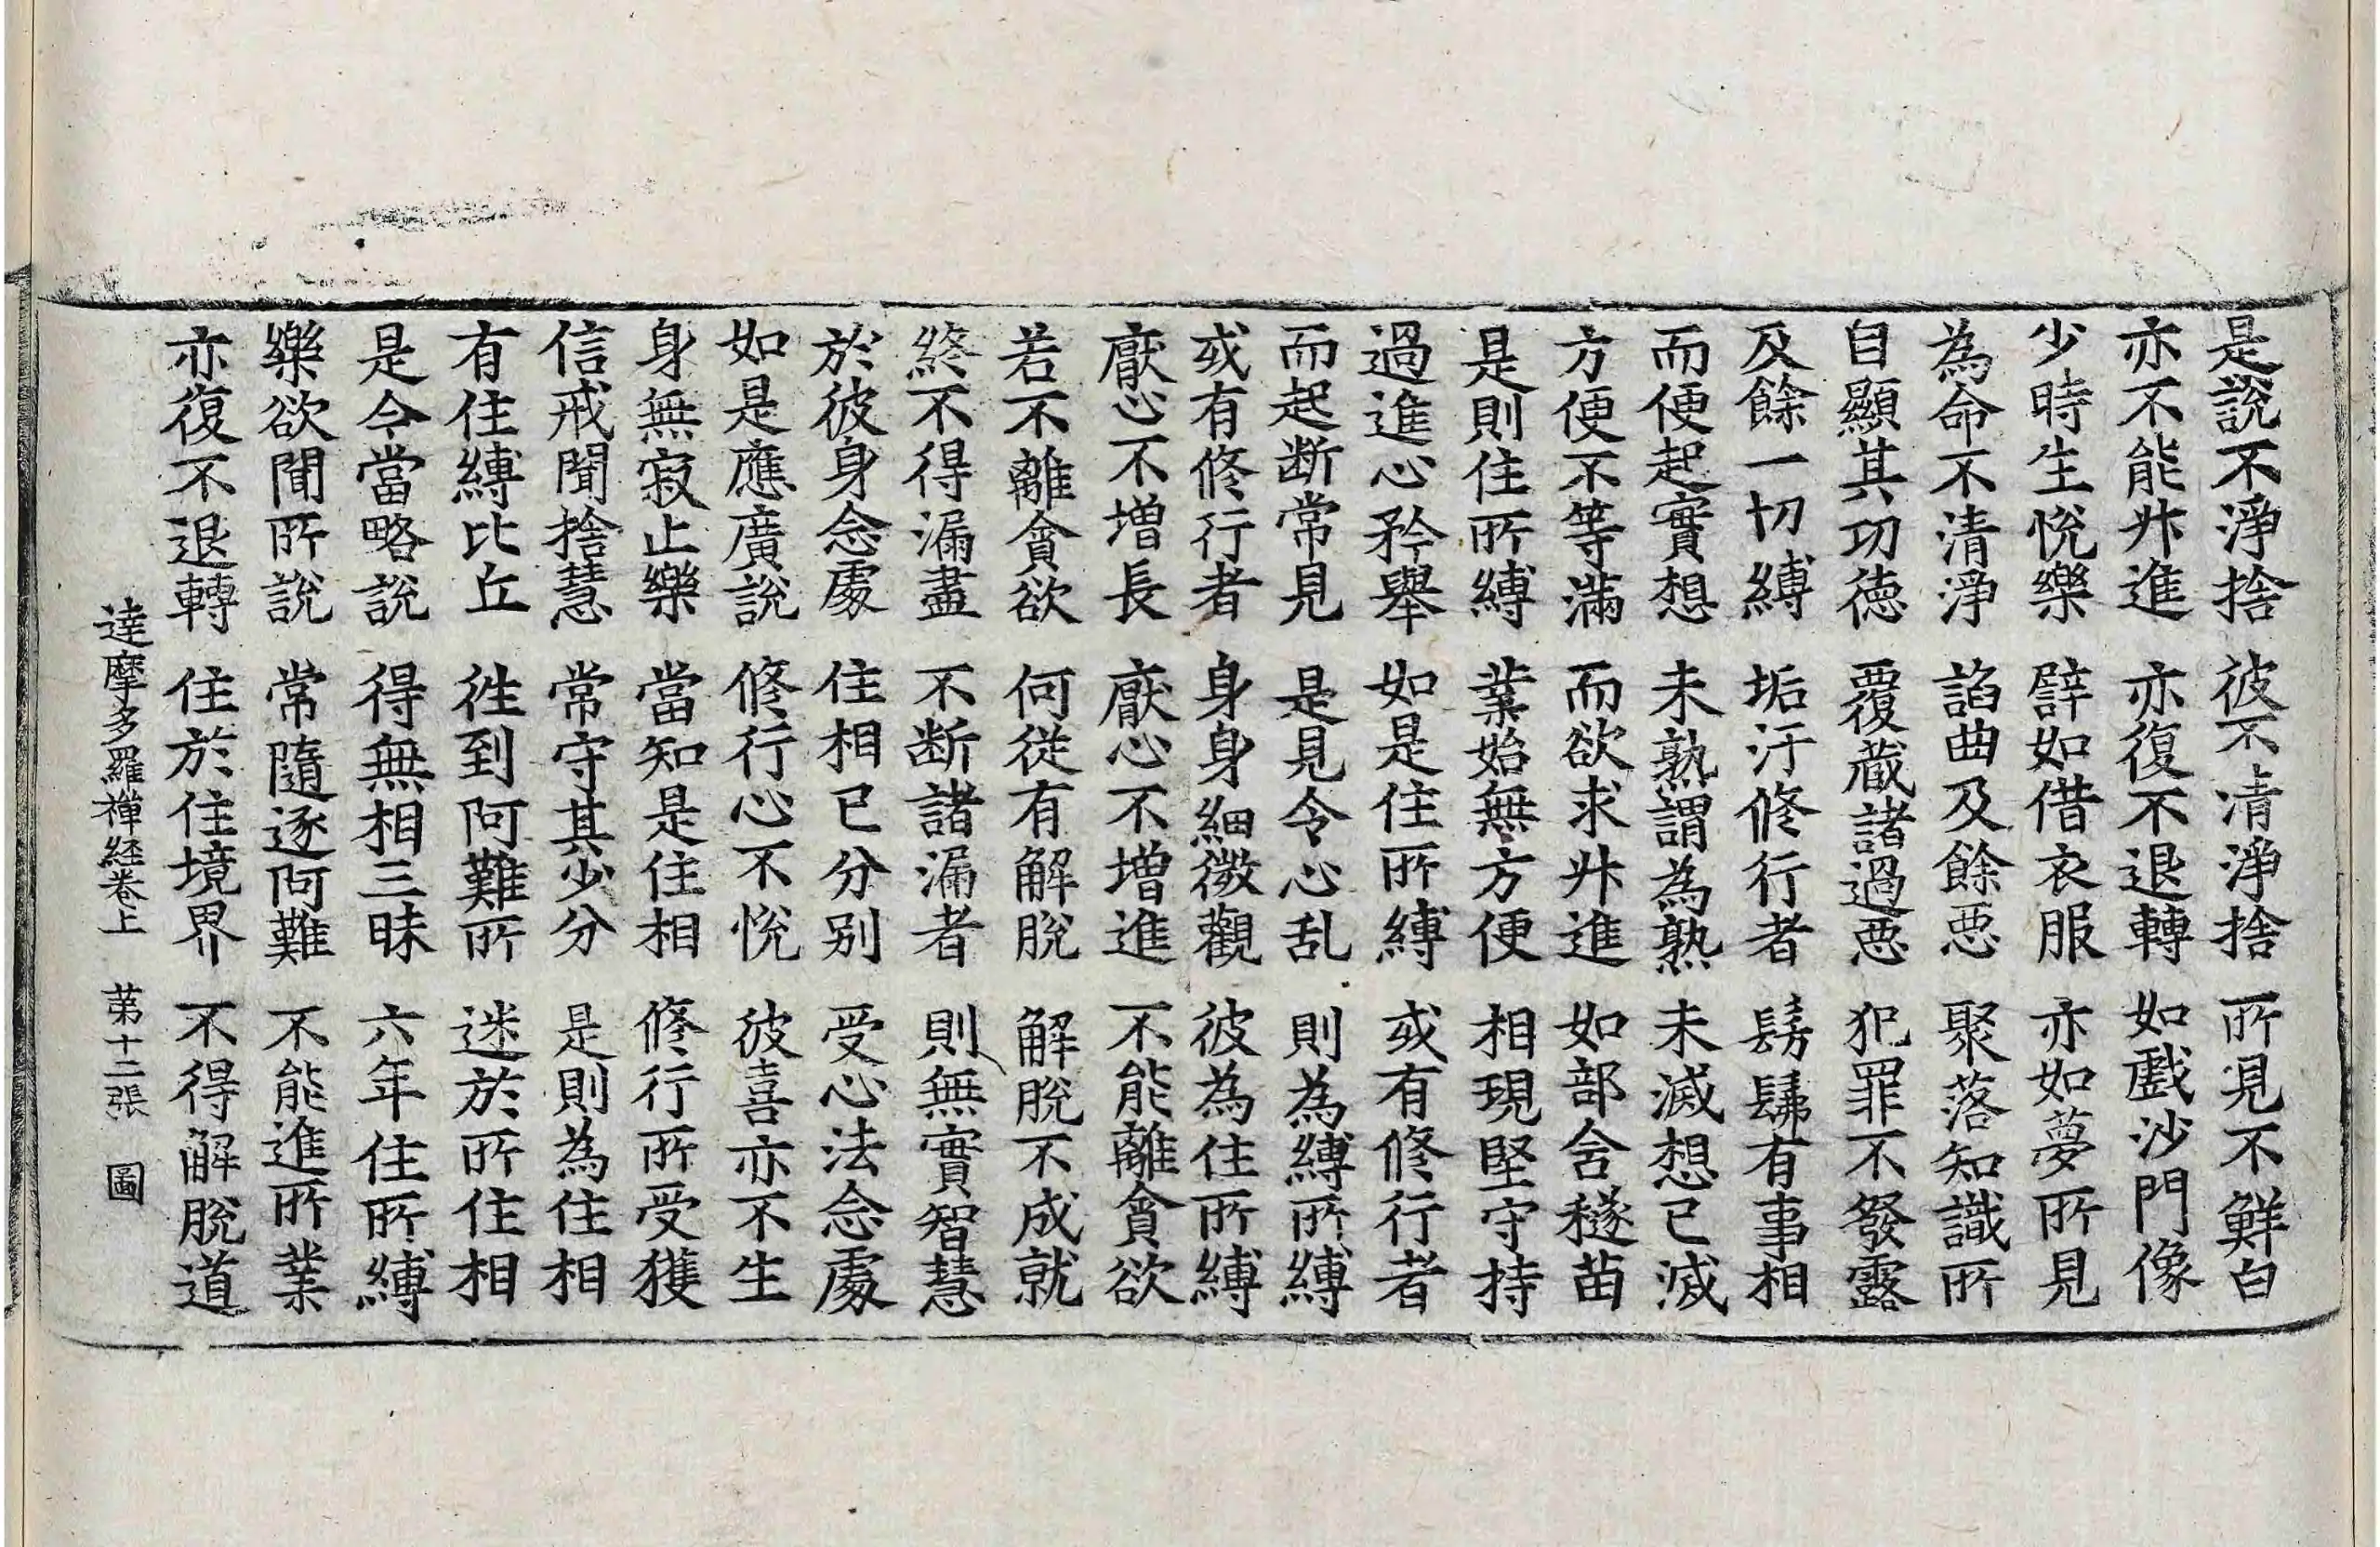 是說不淨捨 彼不清淨捨 所見不鮮白
亦不能升進 亦復不退轉 如戲沙門像
少時生悅樂 譬如借衣服 亦如夢所見
為命不清淨 諂曲及餘惡 聚落知識所
自顯其功德 覆藏諸過惡 犯罪不發露
及餘一切縛 垢汙修行者 髣髴有事相
而便起實想 未熟謂為熟 未滅想已滅
方便不等滿 而欲求升進 如部舍穟苗
是則住所縛 業始無方便 相現堅守持
過進心矜舉 如是住所縛 或有修行者
而起断常見 是見令心乱 則為縛所縛
或有修行者 身身細微觀 彼為住所縛
厭心不增長 厭心不增進 不能離貪欲
若不離貪欲 何從有解脫 解脫不成就
終不得漏盡 不断諸漏者 則無實智慧
於彼身念處 住相已分别 受心法念處
如是應廣說 修行心不悅 彼喜亦不生
身無寂止樂 當知是住相 修行所受獲
信戒聞捨慧 常守其少分 是則為住相
有住縛比丘 徃到阿難所 迷於所住相
是今當略說 得無相三昧 六年住所縛
樂欲聞所說 常隨逐阿難 不能進所業
亦復不退轉 住於住境界 不得解脫道
達摩多羅禪経卷上 第十二張 圖